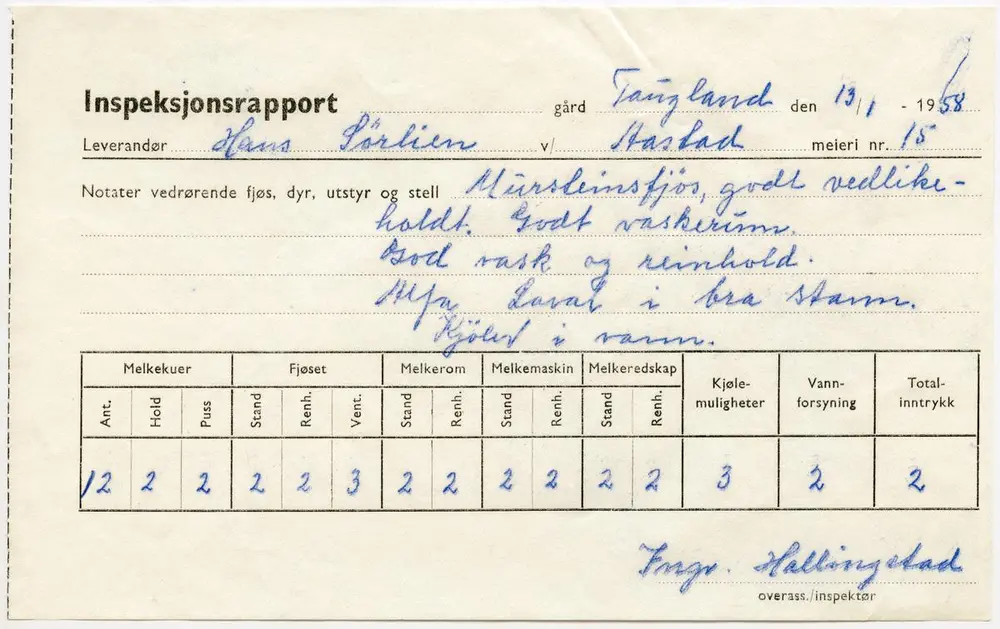 Inspeksjonsrapport gård Taugland den 13/1 - 1958
Leverandør Hans Sörlien v/ Aastad meieri nr. 15
Notater vedrørende fjøs, dyr, utstyr og stell Mursteinsfjös, godt vedlike-
holdt. Godt vaskerum.
God vask og reinhold.
Alfa Laval i bra stann.
Kjöler i vann.
Melkekuer Fjøset Melkerom Melkemaskin Melkeredskap Kjøle-muligheter Vann-forsyning Total-inntrykk
Ant. Hold Puss Stand Renh. Vent. Stand Renh. Stand Renh. Stand Renh.
12 2 2 2 2 3 2 2 2 2 2 2 3 2 2
Hallingstad
overass./inspektør